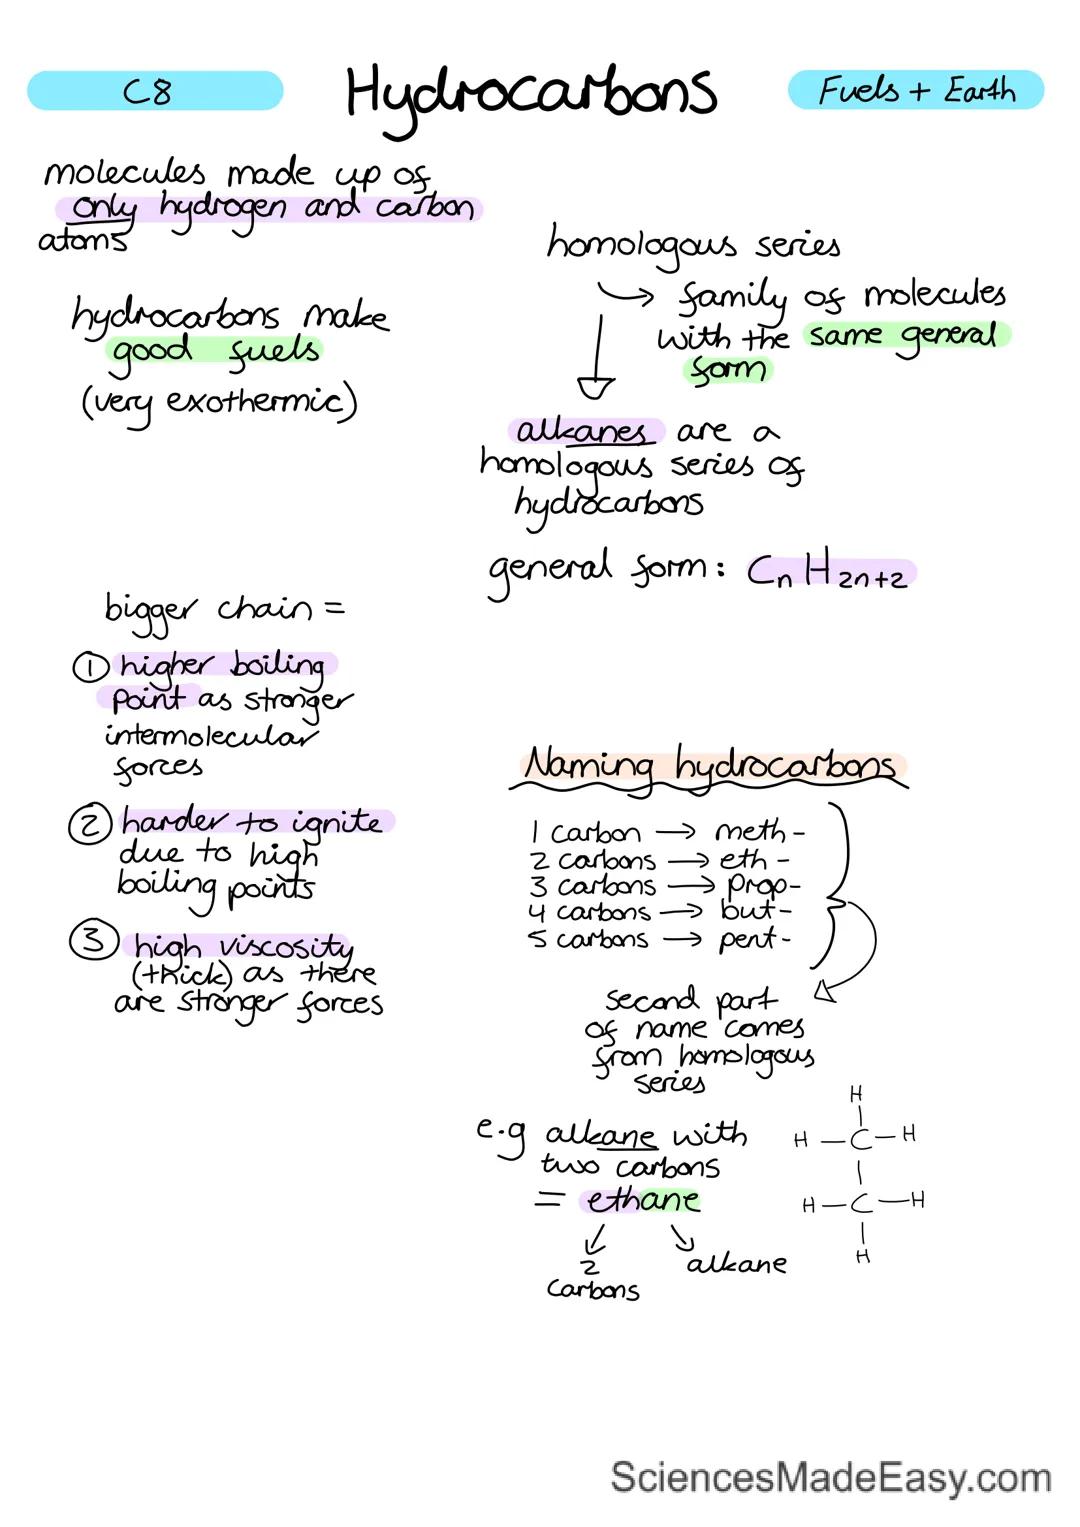 C8
Hydrocarbons
Fuels + Earth
molecules made up of
only hydrogen and carbon
atoms
hydrocarbons make
good fuels
(very exothermic)
homologous series
→ family of molecules
with the same general
form
alkanes are a
homologous series of
hydrocarbons
general form: CnH2n+2
bigger chain =
① higher boiling
point as stronger
intermolecular
forces
② harder to ignite
due to high
boiling points
③ high viscosity
(thick) as there
are stronger forces
Naming hydrocarbons
1 carbon → meth-
2 carbons → eth-
3 carbons → prop-
4 carbons → but-
5 carbons → pent-
second part
of name comes
from homologous
series
e.g alkane with
two carbons
= ethane
2
carbons
alkane
H
H — C — H
H — C — H
H
SciencesMadeEasy.com